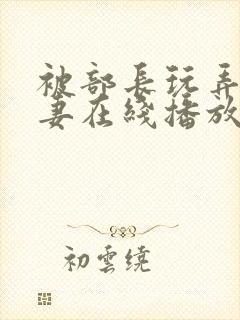 被部長玩弄
妻在綫播放
初雲繞